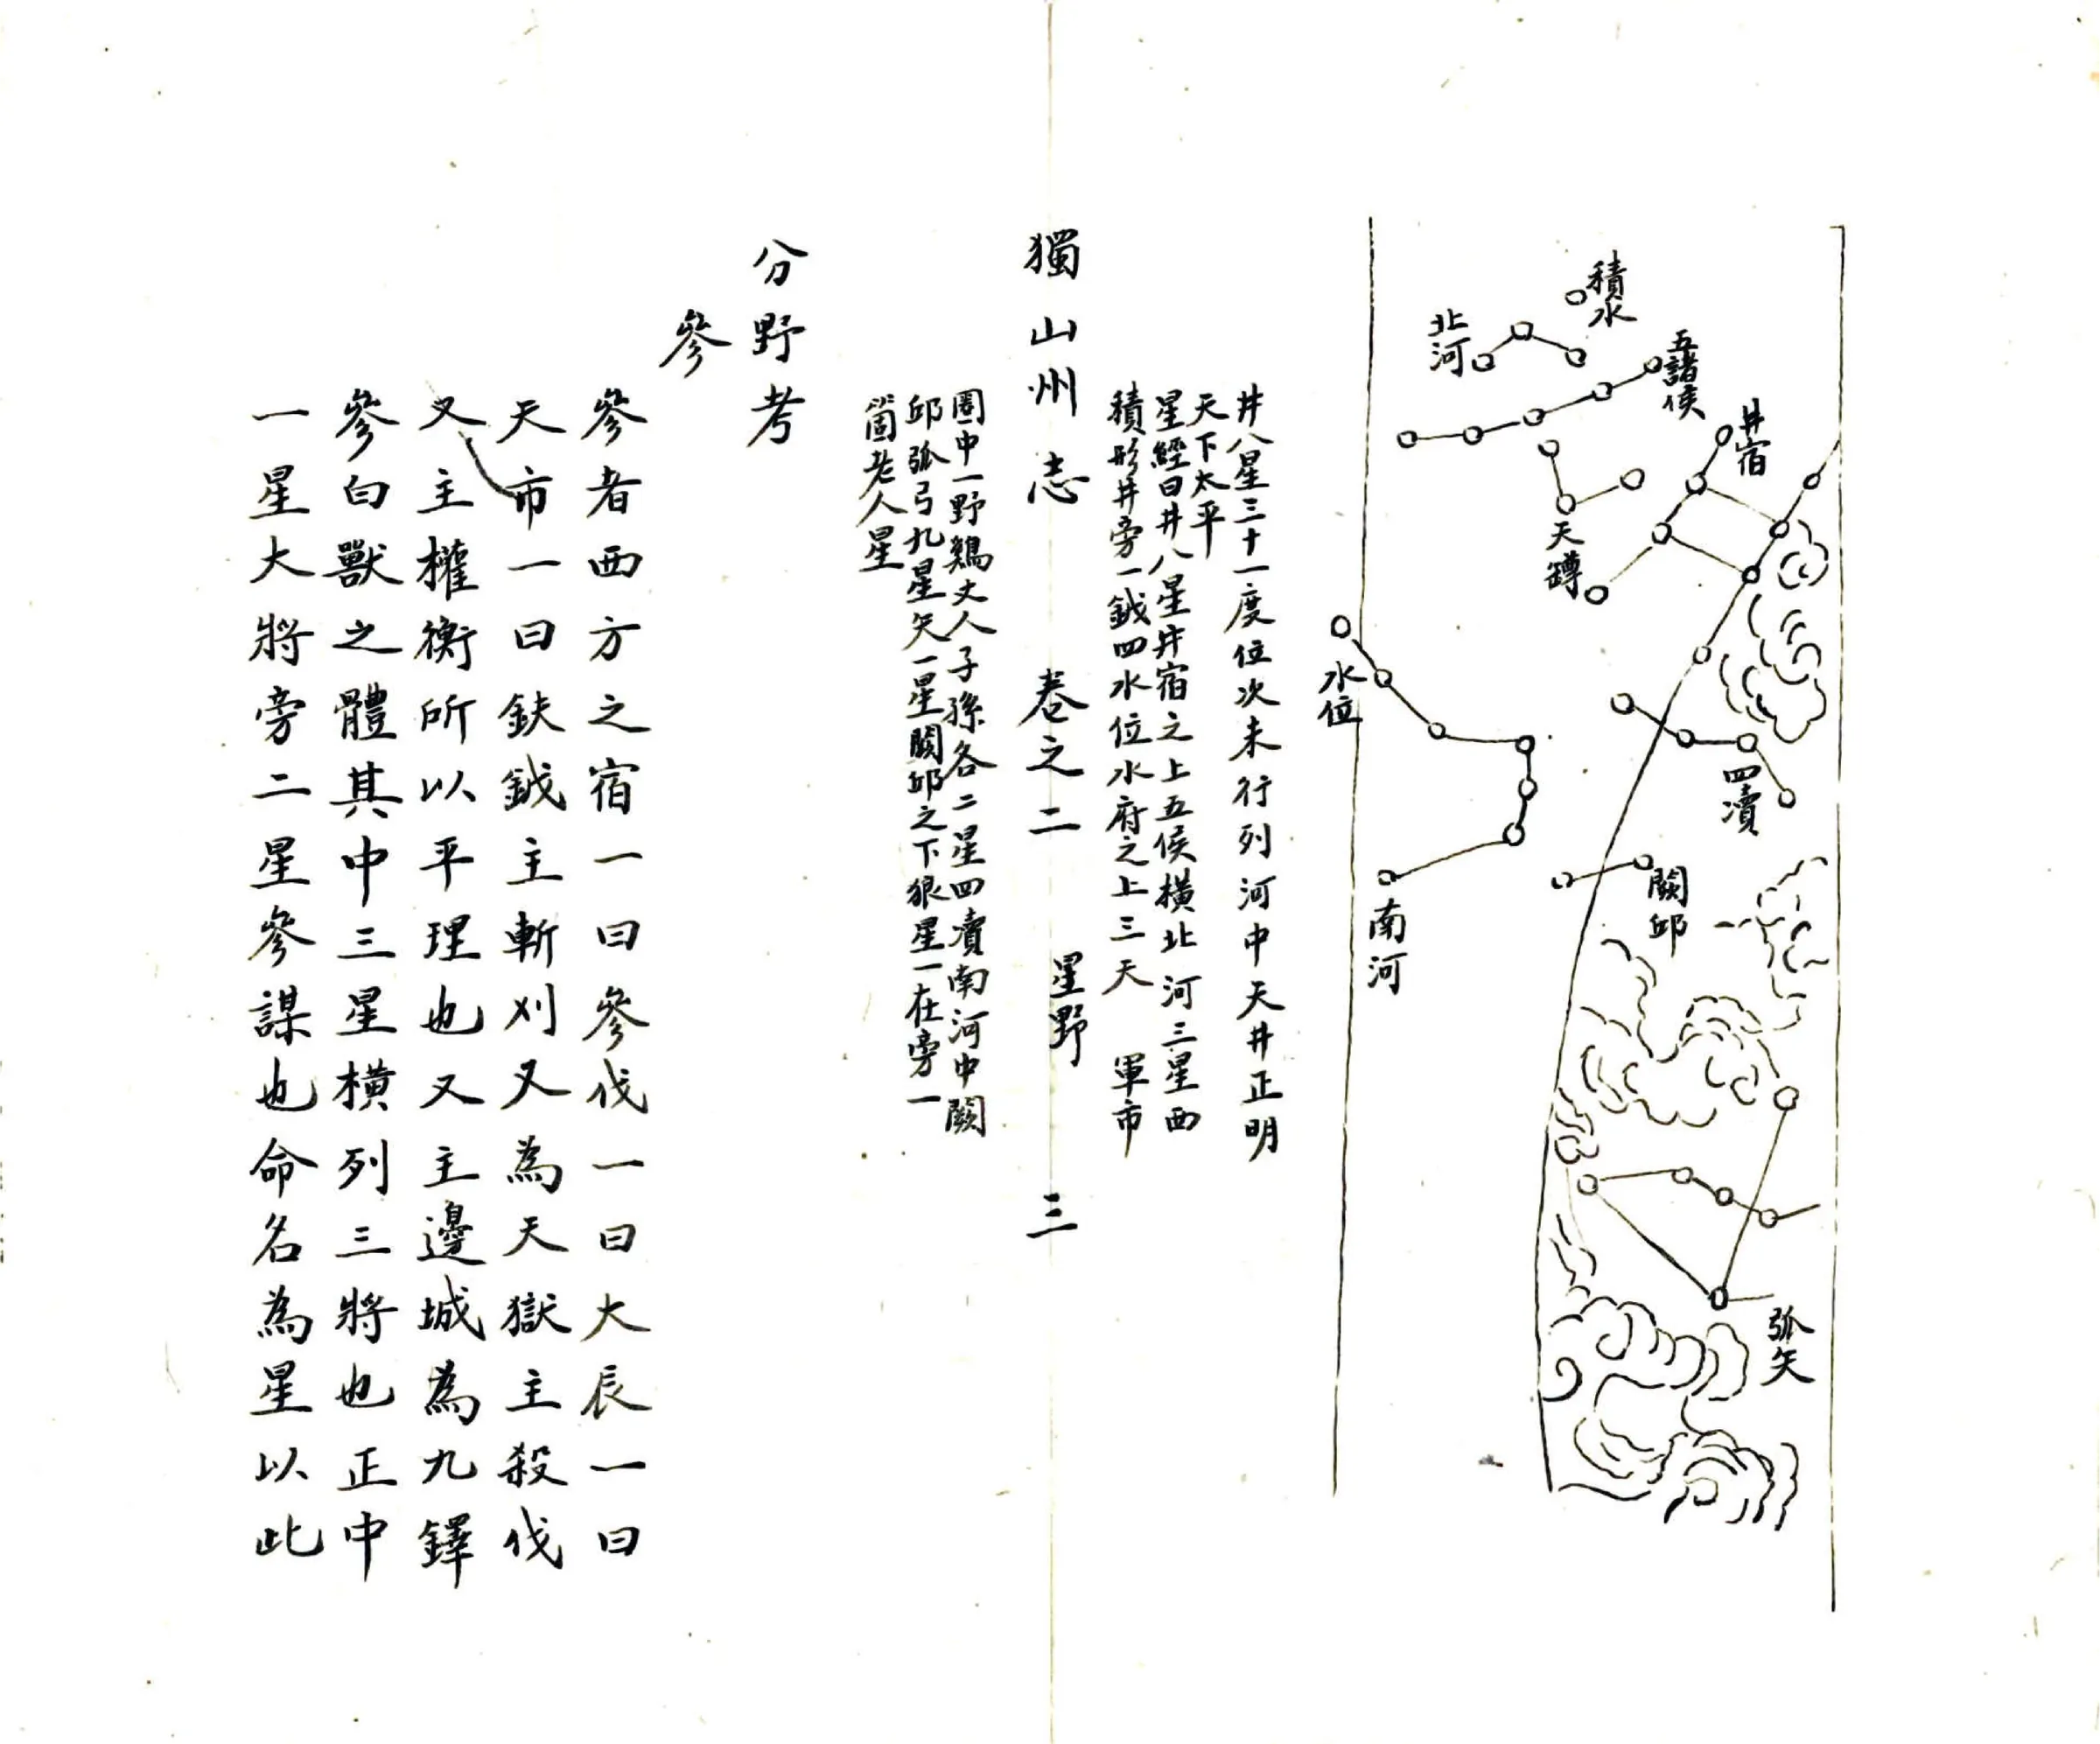 積水
北河
五諸侯
井宿
天罇
水位
四瀆
闕邱
南河
弧矢
井八星三十一度位次未行列河中天井正明
天下太平
星經曰井八星井宿之上五侯橫北河三星西
積形井旁一鉞四水位水府之上三天 軍市
獨山州志 卷之二 星野 三
圈中一野鷄丈人子孫各二星四瀆南河中闕
邱弧弓九星矢一星闕邱之下狼星一在旁一
箇老人星
分野考
參
參者西方之宿一曰參伐一曰大辰一曰
天市一曰鈇鉞主斬刈又為天獄主殺伐
又主權衡所以平理也又主邊城為九鐸
參白獸之體其中三星橫列三將也正中
一星大將旁二星參謀也命名為星以此